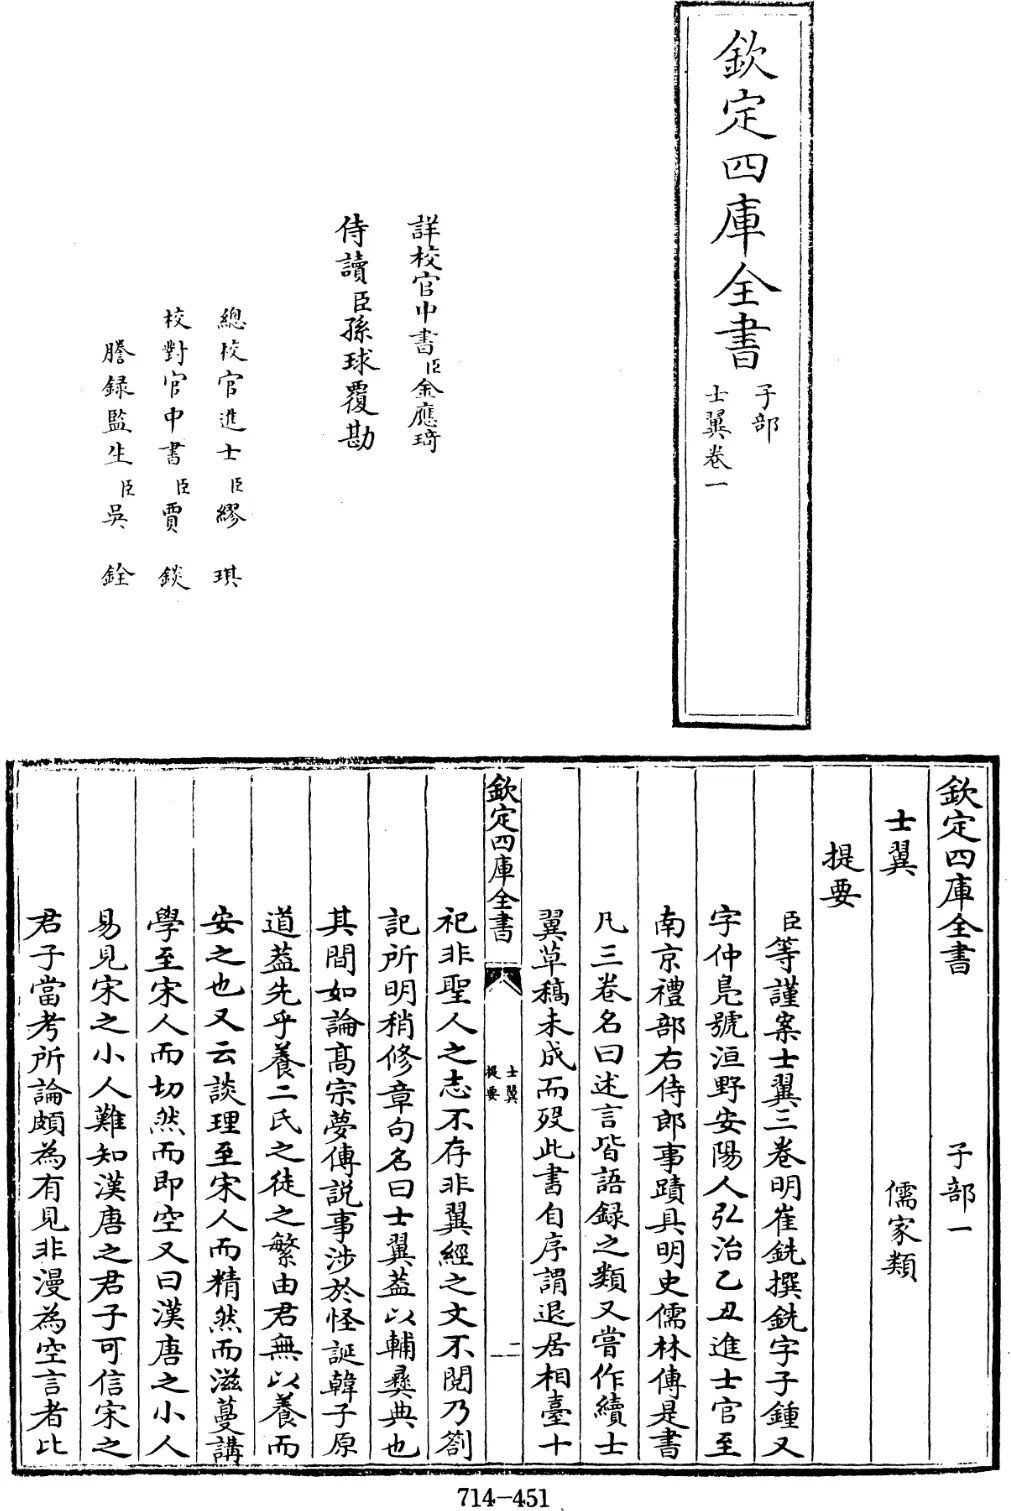 欽定四庫全書
子部
士翼卷一
詳校官中書臣金應琦
侍讀臣孫球覆勘
總校官進士臣繆琪
校對官中書臣賈錟
謄録監生臣吳銓
欽定四庫全書 子部一
士翼 儒家類
提要
臣等謹案士翼三卷明崔銑撰銑字子鍾又
字仲鳬號洹野安陽人弘治乙丑進士官至
南京禮部右侍郎事蹟具明史儒林傳是書
凡三卷名曰述言皆語録之類又嘗作續士
翼草稿未成而殁此書自序謂退居相臺十
欽定四庫全書
士翼
提要
二
祀非聖人之志不存非翼經之文不閱乃劄
記所明稍修章句名曰士翼葢以輔彝典也
其間如論髙宗夢傅説事涉於怪誕韓子原
道葢先乎養二氏之徒之繁由君無以養而
安之也又云談理至宋人而精然而滋蔓講
學至宋人而切然而即空又曰漢唐之小人
易見宋之小人難知漢唐之君子可信宋之
君子當考所論頗為有見非漫為空言者比
714-451